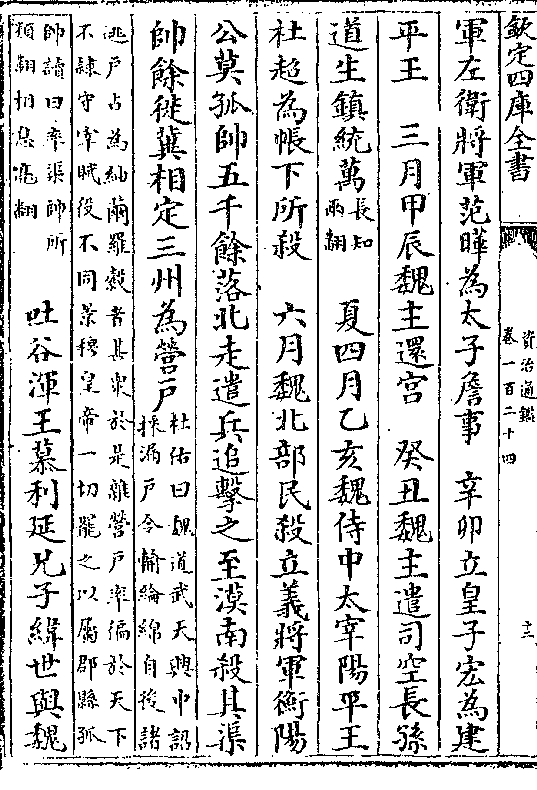 欽定四庫全書
資治通鑑
卷一百二十四
十三
軍左衛將軍范曄為太子詹事　辛卯立皇子宏為建
平王　三月甲辰魏主還宮　癸丑魏主遣司空長孫
道生鎮統萬長知兩翻　夏四月乙亥魏侍中太宰陽平王
杜超為帳下所殺　六月魏北部民殺立義將軍衡陽
公莫孤帥五千餘落北走遣兵追擊之至漠南殺其渠
帥餘徙冀相定三州為營戶杜佑曰魏道武天興中詔採漏戶令輸綸綿自後諸
逃戶占為紬繭羅縠者甚衆於是雜營戶率徧於天下
不隸守宰賦役不同景穆皇帝一切罷之以屬郡縣孤
帥讀曰率渠帥所類翻相息亮翻　吐谷渾王慕利延兄子緯世與魏